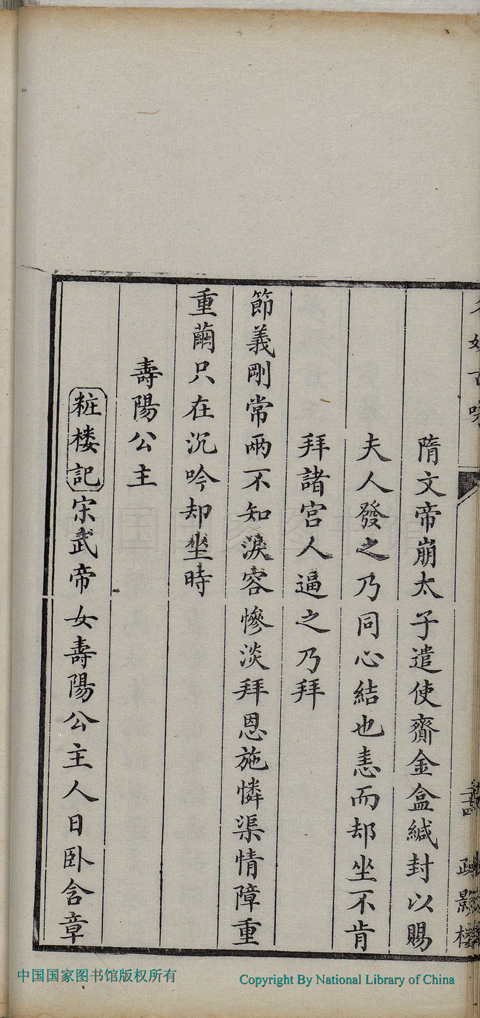 隋文帝崩太子遣使齎金盒緘封以賜
夫人發之乃同心結也恚而却坐不肯
拜諸宮人逼之乃拜
節義剛常兩不知淚容慘淡拜恩施憐渠情障重
重繭只在沉吟却坐時
壽陽公主
粧楼記宋武帝女壽陽公主人日卧含章
中国国家图书馆版权所有
Copyright By National Library of China